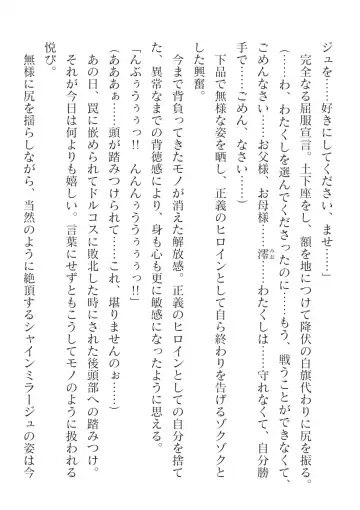 ジュを……好きにしてください、ませ……」
完全なる屈服宣言。土下座をし、額を地につけて降伏の白旗代わりに尻を振る。
(……わ、わたくしを選んでくださったのに……もう、戦うことができなくて、
ごめんなさい……お父様、お母様……澪みお……わたくしは……守れなくて、自分勝
手で……ごめん、なさい……)
下品で無様な姿を晒し、正義のヒロインとして自ら終わりを告げるゾクゾクと
した興奮。
今まで背負ってきたモノが消えた解放感。正義のヒロインとしての自分を捨て
た、異常なまでの背徳感により、身も心も更に敏感になったように思える。
「んぶぅうぅぅっ!!　んんんぅううぅぅぅっ!!」
(あああぁ……頭が踏みつけられて……これ、堪りませんのぉ……)
あの日、罠に嵌められてドルコスに敗北した時にされた後頭部への踏みつけ。
それが今日は何よりも嬉しい。言葉にせずともこうしてモノのように扱われる
悦び。
無様に尻を揺らしながら、当然のように絶頂するシャインミラージュの姿は今